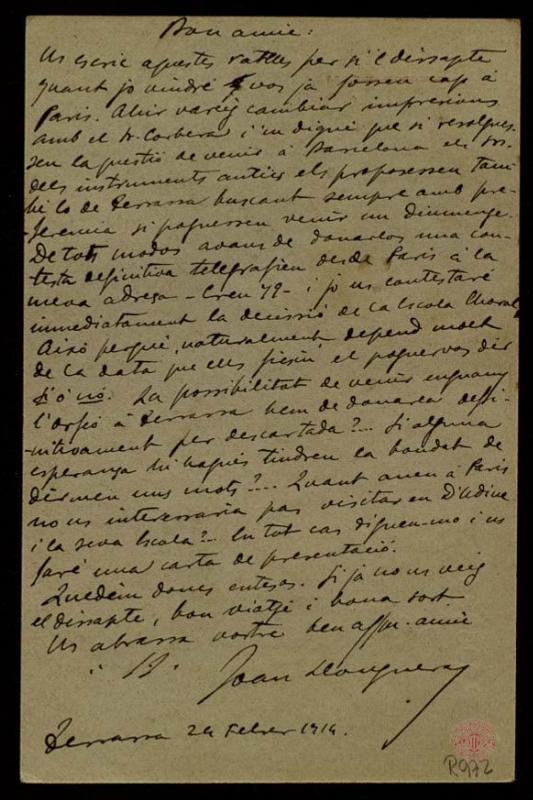 Bon amic:
Us escric aquestes ratlles per si el dissapte
quant jo vindré vos ja fossen cap á
París. Ahir vareig cambiar impresions
amb el Sr. Corbera i 'm digué que si resolgues-
sen la questió de venir á Barcelona els srs.
dels instruments antics els proposessen tam-
bé lo de Terrassa buscant sempre amb pre-
ferencia si poguessen venir un diumenge.
De tots modos avans de donarlos una con-
testa definitiva telegrafien desde París á la
meva adreça - Creu 79 - i jo us contestaré
immediatament la decissió de la Escola Choral.
Aixó perqué, naturalment, depend molt
de la data que ells fixin el poguervos dir
sí ó nó. La possibilitat de venir enguany
l'orfeó á Terrassa hem de donarla defi-
nitivament per descartada?... Si alguna
esperança hi hagués tindreu la bondat de
dirmen uns mots?... Quant aneu á París
no us interessaria pas visitar en D'Udine
i la seva Escola?.. En tot cas digueu-mo i us
faré una carta de presentació.
Quedém doncs entesos. Si ja no us veig
el dissapte, bon viatje i bona sort.
Us abrassa vostre ben affm. amic
Joan Llongueras
Terrassa 24 Febrer 1914.
R972